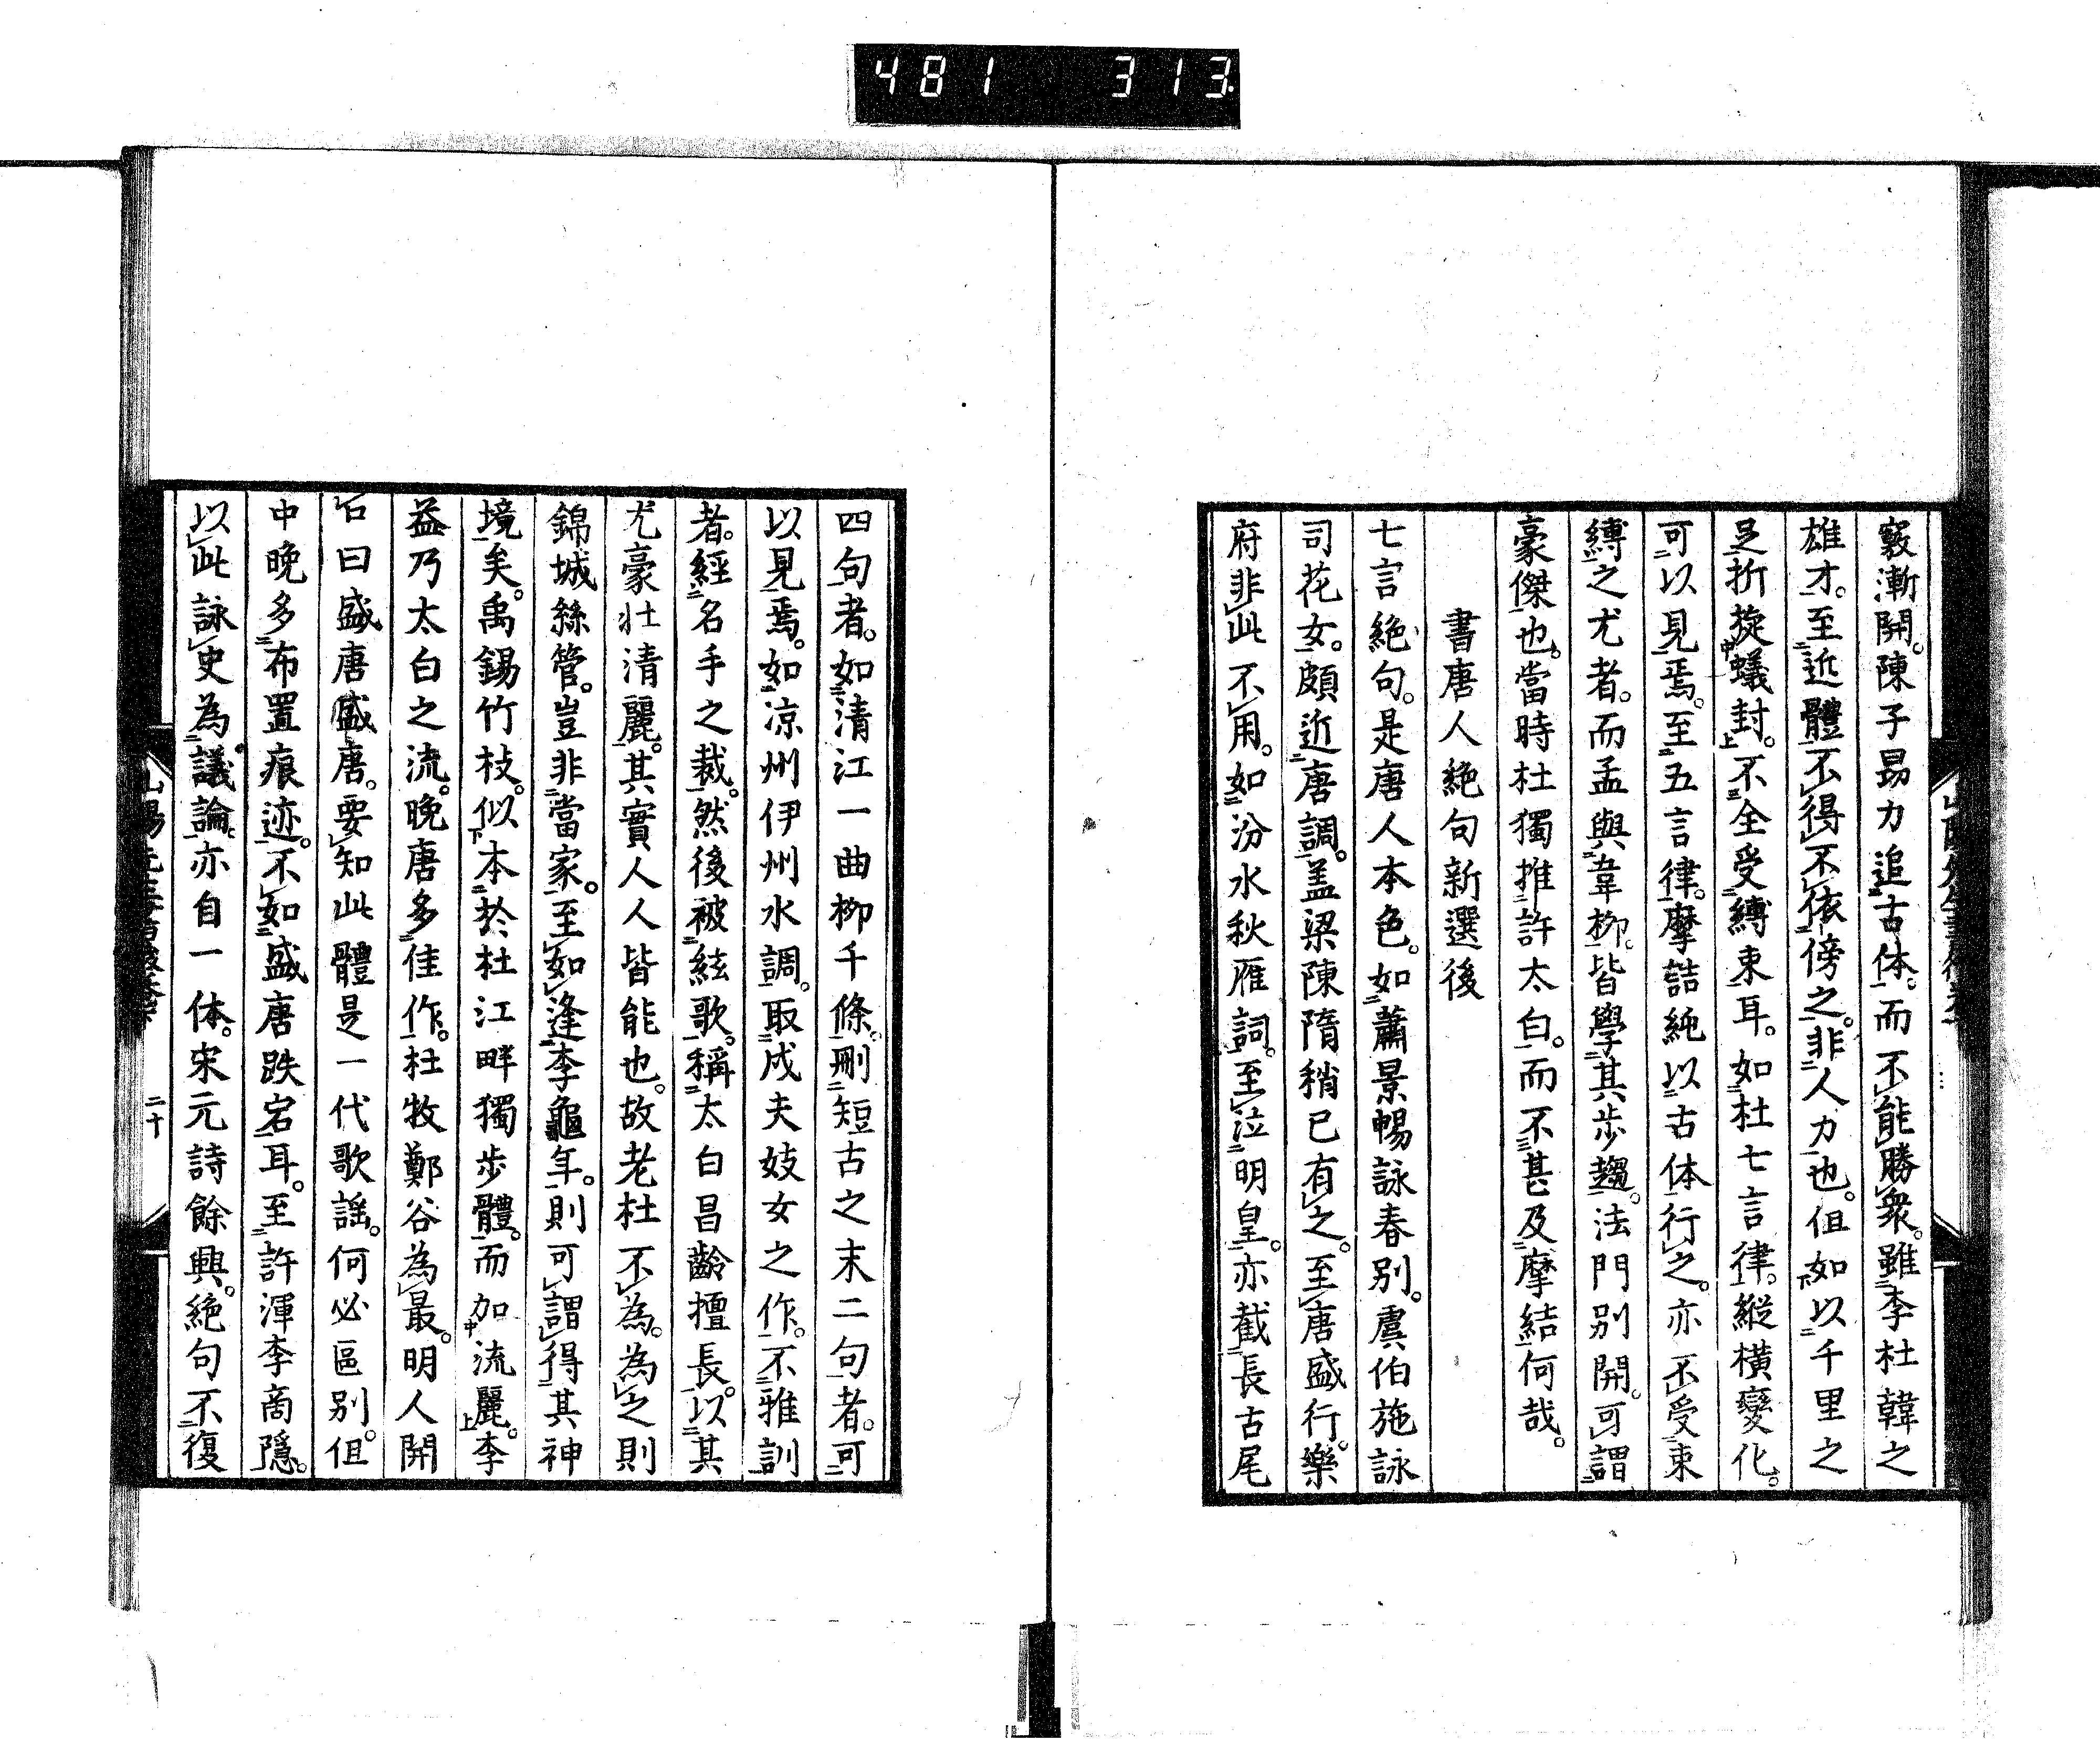 481 313
竅漸開。陳子昻力追古体。而不能勝衆。雖李杜韓之
雄才。至近體不得不依傍之。非人力也。但如以千里之
足折旋蟻封。不全受縛束耳。如杜七言律。縱橫變化。
可以見焉。至五言律。摩詰純以古体行之。亦不受束
縛之尤者。而孟與韋柳。皆學其步趨。法門別開。可謂
豪傑也。當時杜獨推許太白。而不甚及摩結何哉。
書唐人絶句新選後
七言絶句。是唐人本色。如蕭景暢詠春別。虞伯施詠
司花女。頗近唐調。盖梁陳隋稍已有之。至唐盛行。樂
府非此不用。如汾水秋雁詞。至泣明皇。亦截長古尾
四句者。如清江一曲柳千條。刪短古之末二句者。可
以見焉。如凉州伊州水調。取成夫妓女之作。不雅訓
者。經名手之裁。然後被絃歌。稱太白昌齡擅長。以其
尤豪壯清麗。其實人人皆能也。故老杜不為。為之則
錦城絲管。豈非當家。至如逢李龜年。則可謂得其神
境矣。禹錫竹枝。似本於杜江畔獨步體。而加流麗。李
益乃太白之流。晚唐多佳作。杜牧鄭谷為最。明人開
口曰盛唐盛唐。要知此體是一代歌謡。何必區別。但
中晚多布置痕迹。不如盛唐跌宕耳。至許渾李商隱。
以此詠史為議論。亦自一体。宋元詩餘興。絶句不復
二十